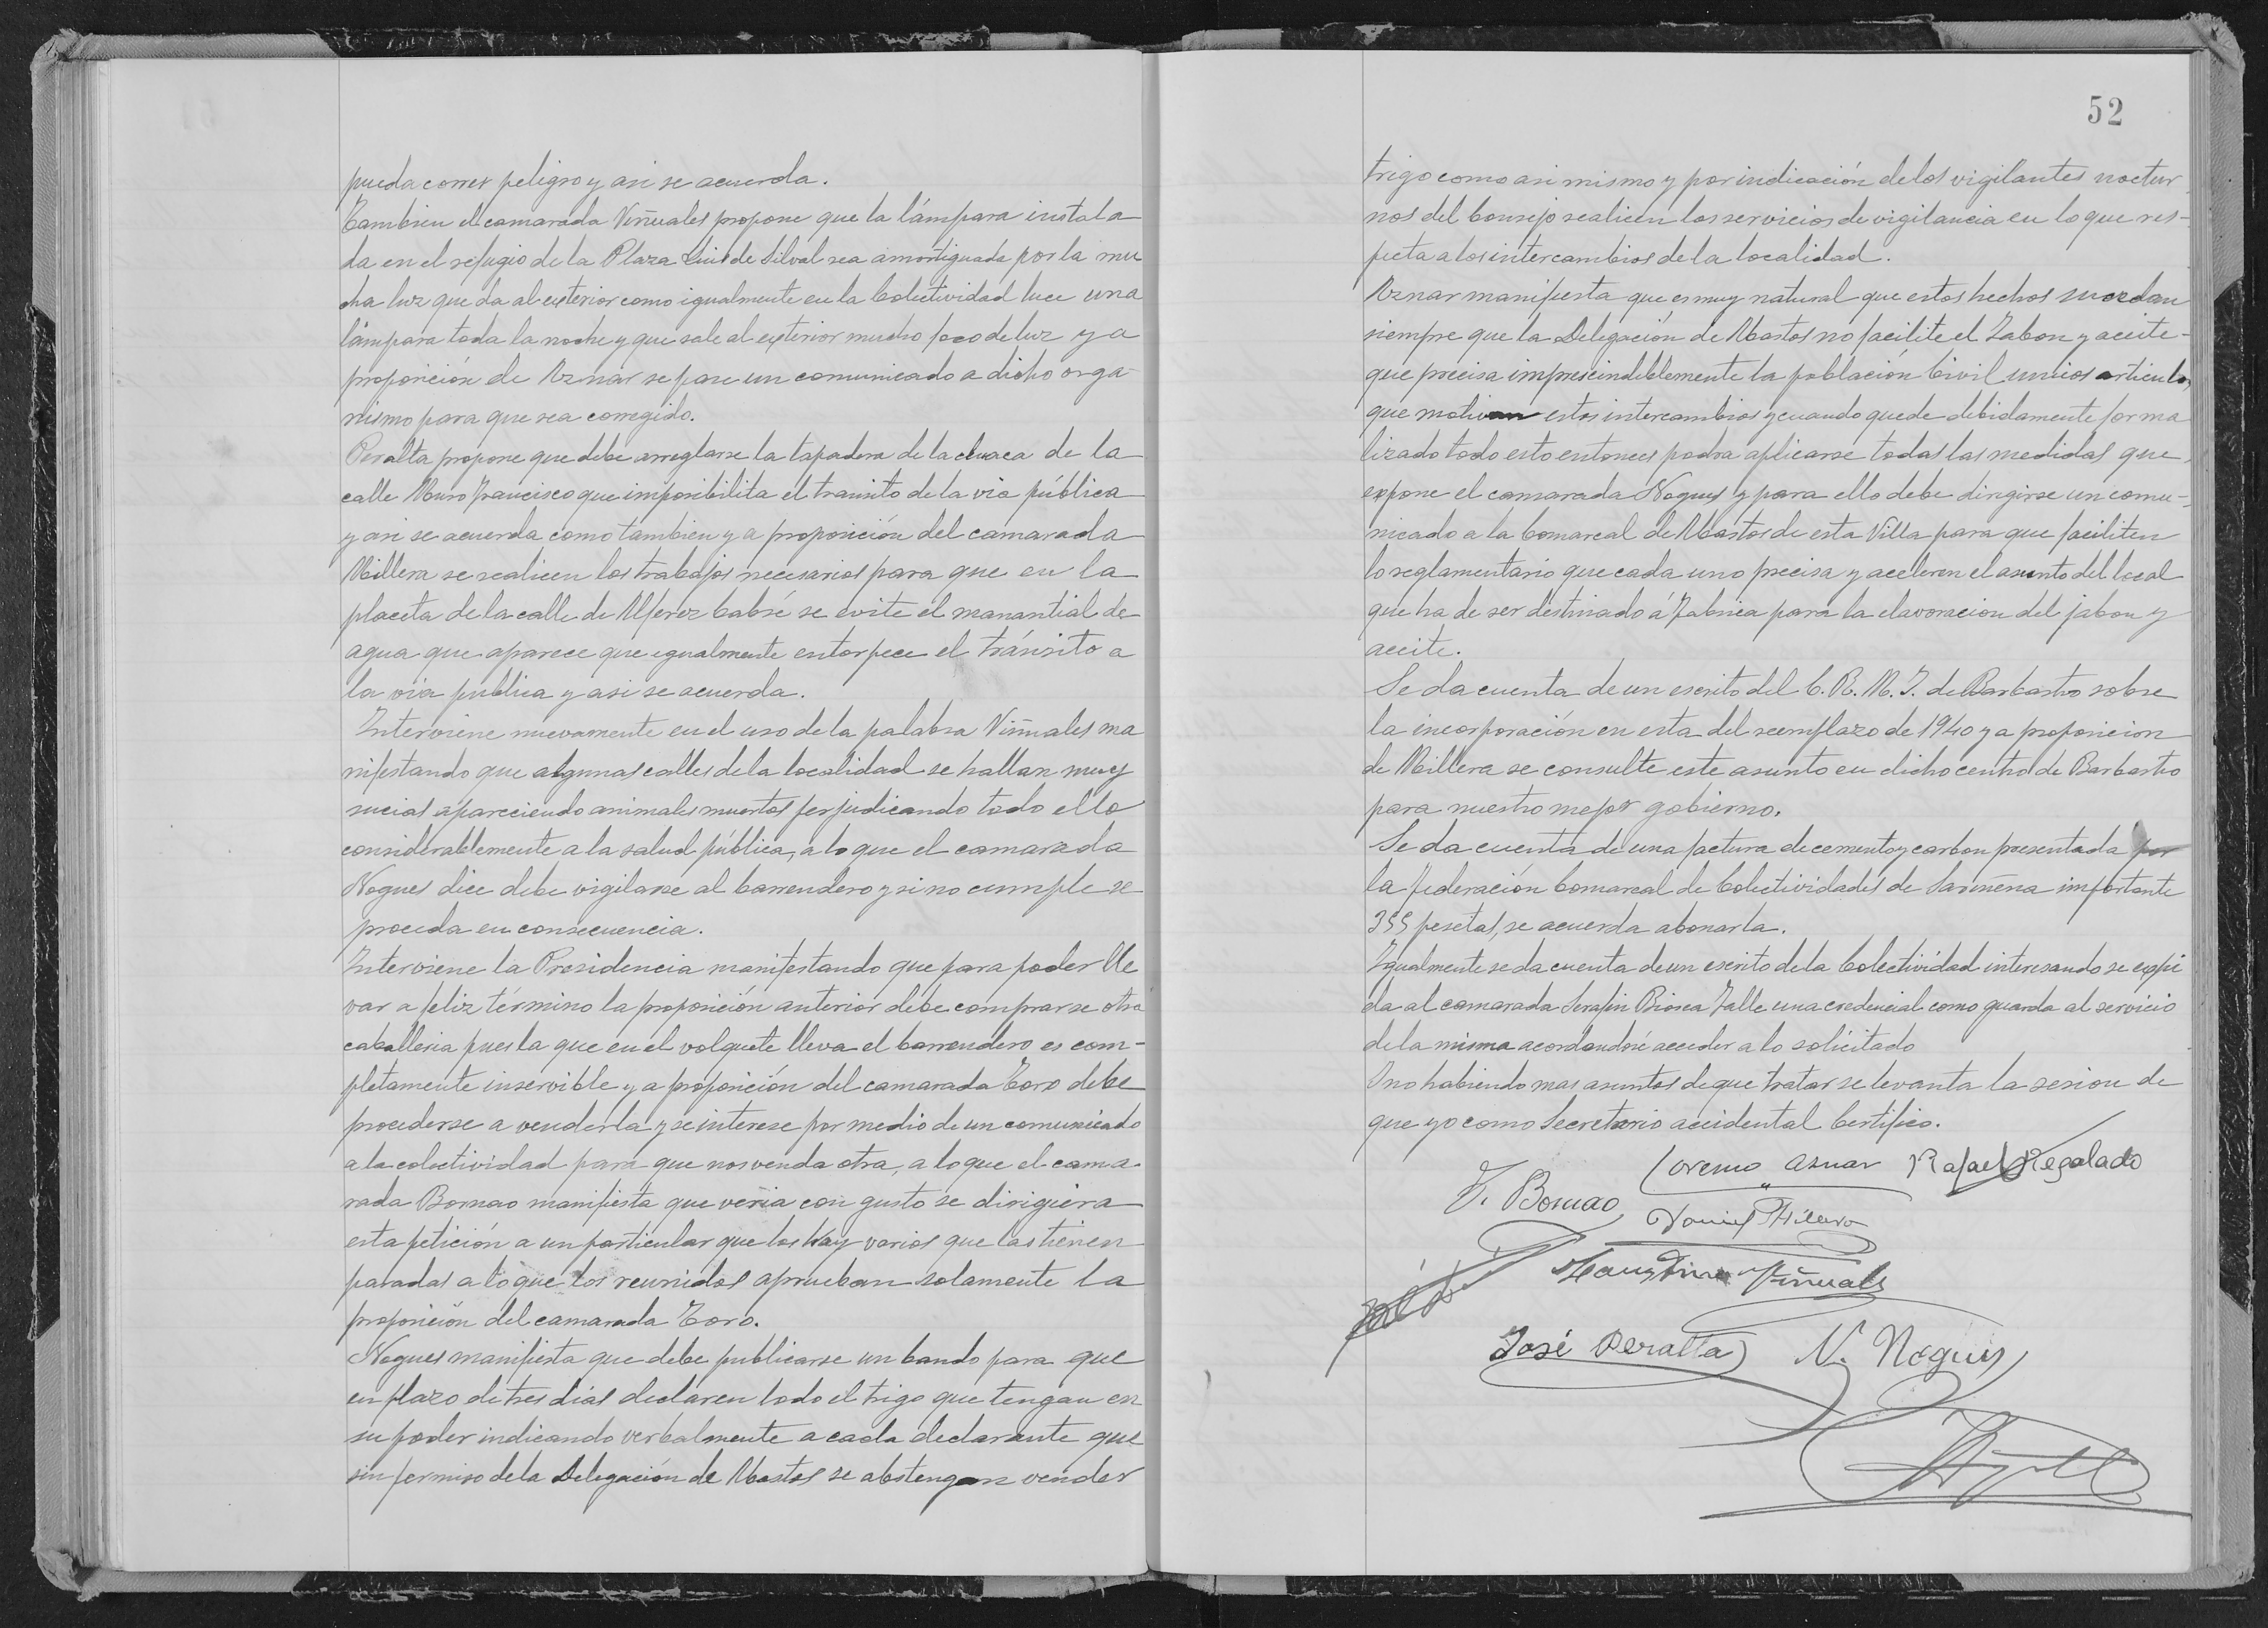 pueda correr peligro y asi se acuerda.
Tambien el camarada Viñuales propone que la lámpara instala
da en el refugio de la Plaza Luis de Silval sea amortiguada por la mu
cha luz que da al exterior como igualmente en la Colectividad luce una
lámpara toda la noche y que sale al exterior mucho foco de luz y a
proposición de Aznar se pase un comunicado a dicho orga-
nismo para que sea corregido.
Peralta propone que debe arreglarse la tapadera de la cloaca de la
calle Muro Francisco que imposibilita el transito de la via pública
y asi se acuerda como tambien y a proposición del camarada
Millera se realicen los trabajos necesarios para que en la
placeta de la calle de Alferez Cabré se evite el manantial de
agua que aparece que igualmente entorpece el tránsito a
la via publica y asi se acuerda.
Interviene nuevamente en el uso de la palabra Viñuales ma
nifestando que algunas calles de la localidad se hallan muy
sucias apareciendo animales muertos perjudicando todo ello
considerablemente a la salud pública, a lo que el camarada
Nogues dice debe vigilarse al barrendero y si no cumple se
proceda en consecuencia.
Interviene la Presidencia manifestando que para poder lle
var a feliz término la proposición anterior debe comprarse otra
caballeria pues la que en el volquete lleva el barrendero es com-
pletamente inservible y a proposición del camarada Toro debe
procederse a venderla y se interese por medio de un comunicado
a la colectividad para que nos venda otra, a lo que el cama-
rada Bornao manifiesta que veria con gusto se dirigiera
esta petición a un particular que los hay varios que las tienen
paradas a lo que los reunidos aprueban solamente la
proposición del camarada Toro.
Nogues manifiesta que debe publicarse un bando para que
en plazo de tres dias declaren todo el trigo que tengan en
su poder indicando verbalmente a cada declarante que
sin permiso de la Delegación de Abastos se abstengan vender
52
trigo como asi mismo y por indicación de los vigilantes noctur
nos del Consejo realicen los servicios de vigilancia en lo que res-
pecta a los intercambios de la localidad.
Aznar manifiesta que es muy natural que estos hechos sucedan
siempre que la Delegación de Abastos no facilite el Jabon y aceite-
que precisa imprescindiblemente la población Civil unicos articulos
que motivan estos intercambios y cuando quede debidamente forma
lizado todo esto entonces podra aplicarse todas las medidas que
expone el camarada Nogues y para ello debe dirigirse un comu-
nicado a la Comarcal de Abastos de esta Villa para que faciliten
lo reglamentario que cada uno precisa y aceleren el asunto del local
que ha de ser destinado á Fabrica para la elavoracion del jabon y
aceite.
Se da cuenta de un escrito del C. R. M. I. de Barbastro sobre
la incorporación en esta del reemplazo de 1940 y a proposicion
de Millera se consulte este asunto en dicho centro de Barbastro
para nuestro mejor gobierno.
Se da cuenta de una factura de cemento y carbon presentada por
la federación Comarcal de Colectividades de Sariñena importante
355 pesetas, se acuerda abonarla.
Igualmente se da cuenta de un escrito de la Colectividad interesando se expi
da al camarada Serafin Biosca Falle una credencial como guarda al servicio
de la misma acordandose acceder a lo solicitado
Y no habiendo mas asuntos de que tratar se levanta la sesion de
que yo como Secretario accidental Certifico.
Lorenzo Aznar Rafael Regalado
Bornao
Viñuales
José Peralta N. Nogues